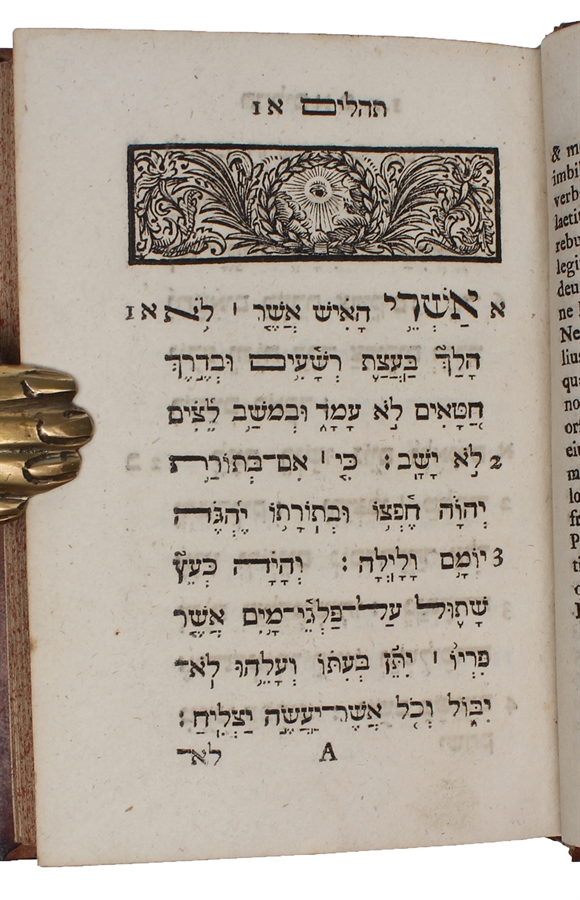 תהלים א 1
א אַשְׁרֵי הָאִישׁ אֲשֶׁר ׀ לֹא א 1
הָלַךְ בַּעֲצַת רְשָׁעִים וּבְדֶרֶךְ
חַטָּאִים לֹא עָמָד וּבְמוֹשַׁב לֵצִים
2 לֹא יָשָׁב׃ כִּי ׀ אִם־בְּתוֹרַת
יְהוָֹה חֶפְצוֹ וּבְתוֹרָתוֹ יֶהְגֶּה
3 יוֹמָם וָלָיְלָה׃ וְהָיָה כְּעֵץ
שָׁתוּל עַל־פַּלְגֵי־מָיִם אֲשֶׁר
פִּרְיוֹ ׀ יִתֵּן בְּעִתּוֹ וְעָלֵהוּ לֹא־
יִבּוֹל וְכֹל אֲשֶׁר־יַעֲשֶׂה יַצְלִיחַ׃
A לא־
& m
imbi
verb
laeti
rebu
legi
deu
ne
Ne
lius
qu
no
ori
eiu
m
lo
fr
P
ti